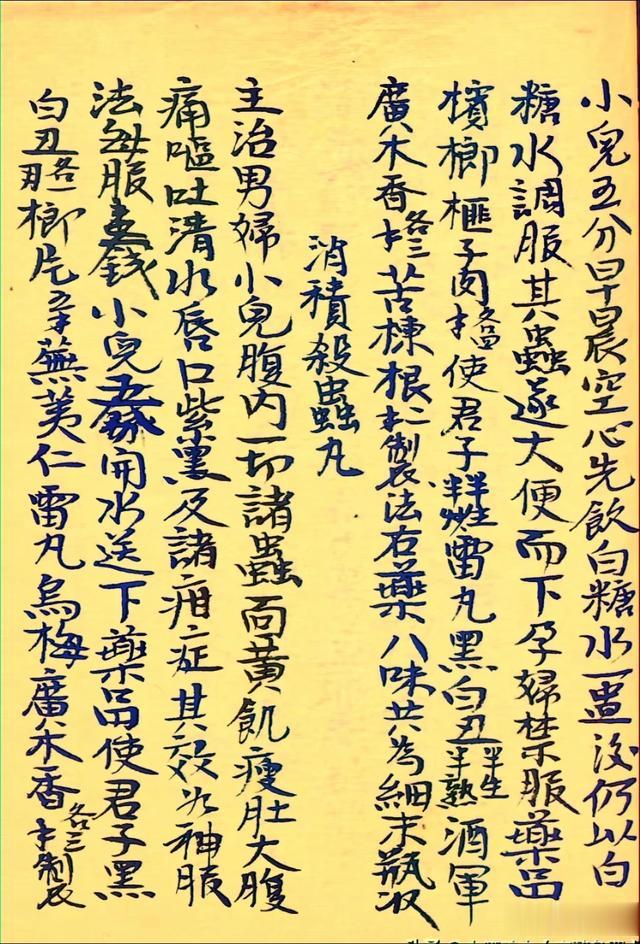 小兒五分早晨空心先飲白糖水一盅後仍以白
糖水調服其蟲逐大便而下孕婦禁服藥品
檳榔榧子肉使君子半生雷丸黑白丑半生半熟酒軍
廣木香各三苦棟根二制法右藥八味共為細末瓶收
消積殺蟲丸
主治男婦小兒腹內一切諸蟲面黃飢瘦肚大腹
痛嘔吐清水唇口紫黑及諸疳症其效如神服
法每服錢小兒開水送下藥品使君子黑
白丑各榔片蕪荑仁雷丸烏梅廣木香各三制